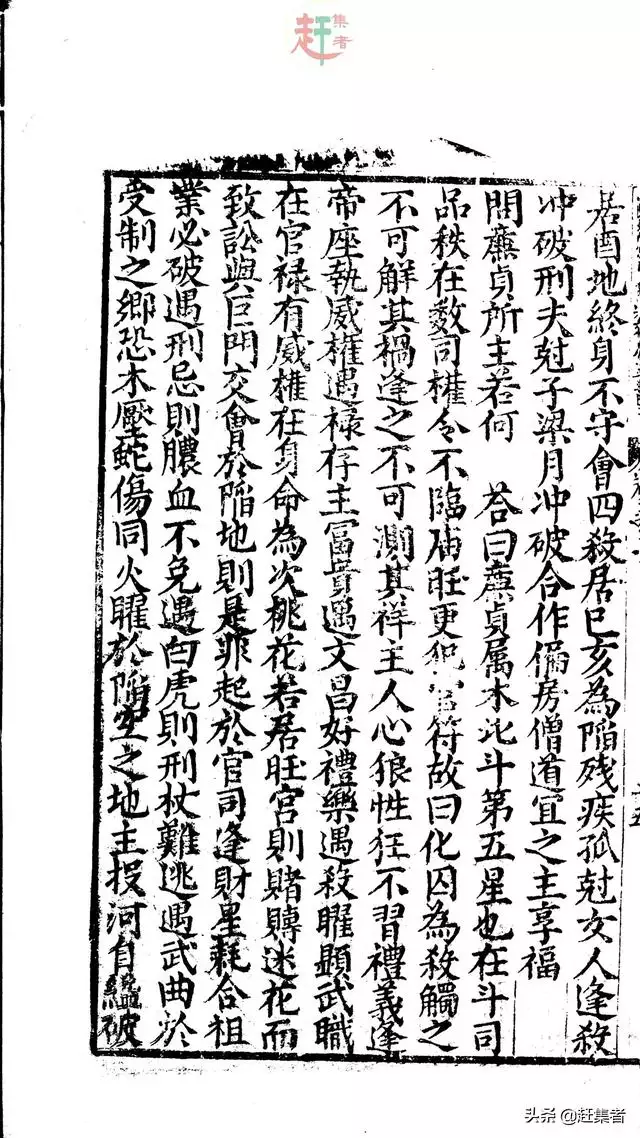 赶集者
居酉地終身不守會四殺居巳亥為陷残疾孤尅女人逢殺
冲破刑夫尅子梁月冲破合作偏房僧道宜之主享福
問廉貞所主若何 荅曰廉貞属木北斗第五星也在斗司
品秩在數司權令不臨庙旺更犯官符故曰化囚為殺觸之
不可解其禍逢之不可測其祥主人心狼性狂不習禮義逢
帝座執威權遇禄存主冨貴遇文昌好禮樂遇殺曜顕武職
在官禄有威權在身命為次桃花若居旺宮則賭賻迷花而
致訟與巨門交會於陷地則是非起於官司逢財星耗合祖
業必破遇刑忌則膿血不免遇白虎則刑杖難逃遇武曲於
受制之鄉恐木壓蛇傷同火曜於陷空之地主投河自縊破
头条 @赶集者